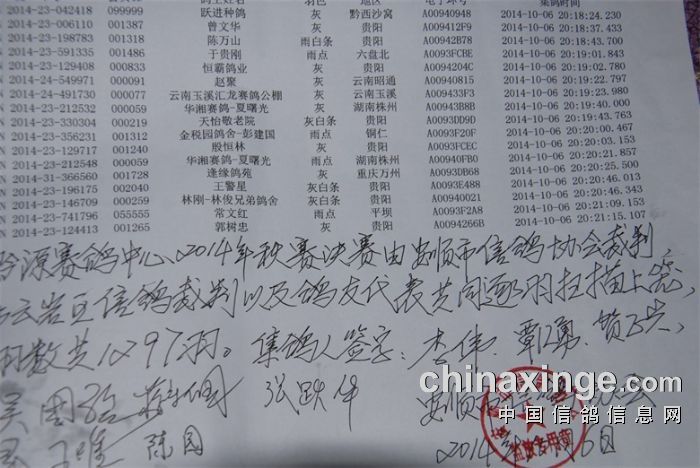 鸽主姓名 羽色 地区 电子环号 集鸽时间
2014-23-042418 099999 跃进种鸽 灰 黔西沙窝 A00940948 2014-10-06 20:18:24.230
2014-23-006110 001387 曾文华 灰 贵阳 A009412F9 2014-10-06 20:18:37.433
2014-23-191318 000108 陈万山 雨白条 贵阳 A00942B78 2014-10-06 20:18:43.700
2014-23-591335 001486 于贵刚 雨点 六盘北 A0093FCBE 2014-10-06 20:19:01.843
2014-23-129408 000833 恒霸鸽业 灰 贵阳 A0094204C 2014-10-06 20:19:02.780
2014-24-549971 000091 赵聚 灰 云南昭通 A00940815 2014-10-06 20:19:22.797
2014-24-491730 000077 云南玉溪汇龙赛鸽公棚 灰 云南玉溪 A009433F3 2014-10-06 20:19:23.980
2014-23-212532 000059 华湘赛鸽-夏曙光 灰 湖南株州 A00943B8B 2014-10-06 20:19:40.000
2014-23-330304 000219 天怡敬老院 灰白条 贵阳 A0093DD9D 2014-10-06 20:19:43.763
2014-23-356231 001312 金税园鸽舍-彭建国 雨点 铜仁 A0093F20F 2014-10-06 20:20:00.467
2014-23-129717 001240 殷恒林 灰 贵阳 A0093FCEC 2014-10-06 20:20:03.173
2014-23-212548 000059 华湘赛鸽-夏曙光 雨点 湖南株州 A00940FB0 2014-10-06 20:20:21.857
2014-31-366560 001728 逢缘鸽苑 灰 重庆万州 A0093DB68 2014-10-06 20:20:25.500
2014-23-196175 002040 王警星 灰白条 贵阳 A0093E488 2014-10-06 20:20:46.013
2014-23-146709 000259 林刚-林俊兄弟鸽舍 灰白条 贵阳 A00940021 2014-10-06 20:20:46.343
2014-23-741796 055555 常文红 雨点 平坝 A0093F2A8 2014-10-06 20:21:09.153
2014-23-124413 001265 郭树忠 灰 贵阳 A0094266B 2014-10-06 20:21:15.107
源赛鸽中心2014年秋赛决赛由安顺市信鸽协会裁判,
云岩区信鸽裁判以及鸽友代表共同逐羽扫描上笼,
羽数共1297羽。集鸽人签字:李伟、覃勇、
吴国 张跃华 安顺
陈园 2014年 6日
chinaxinge.com
中国信鸽信息网